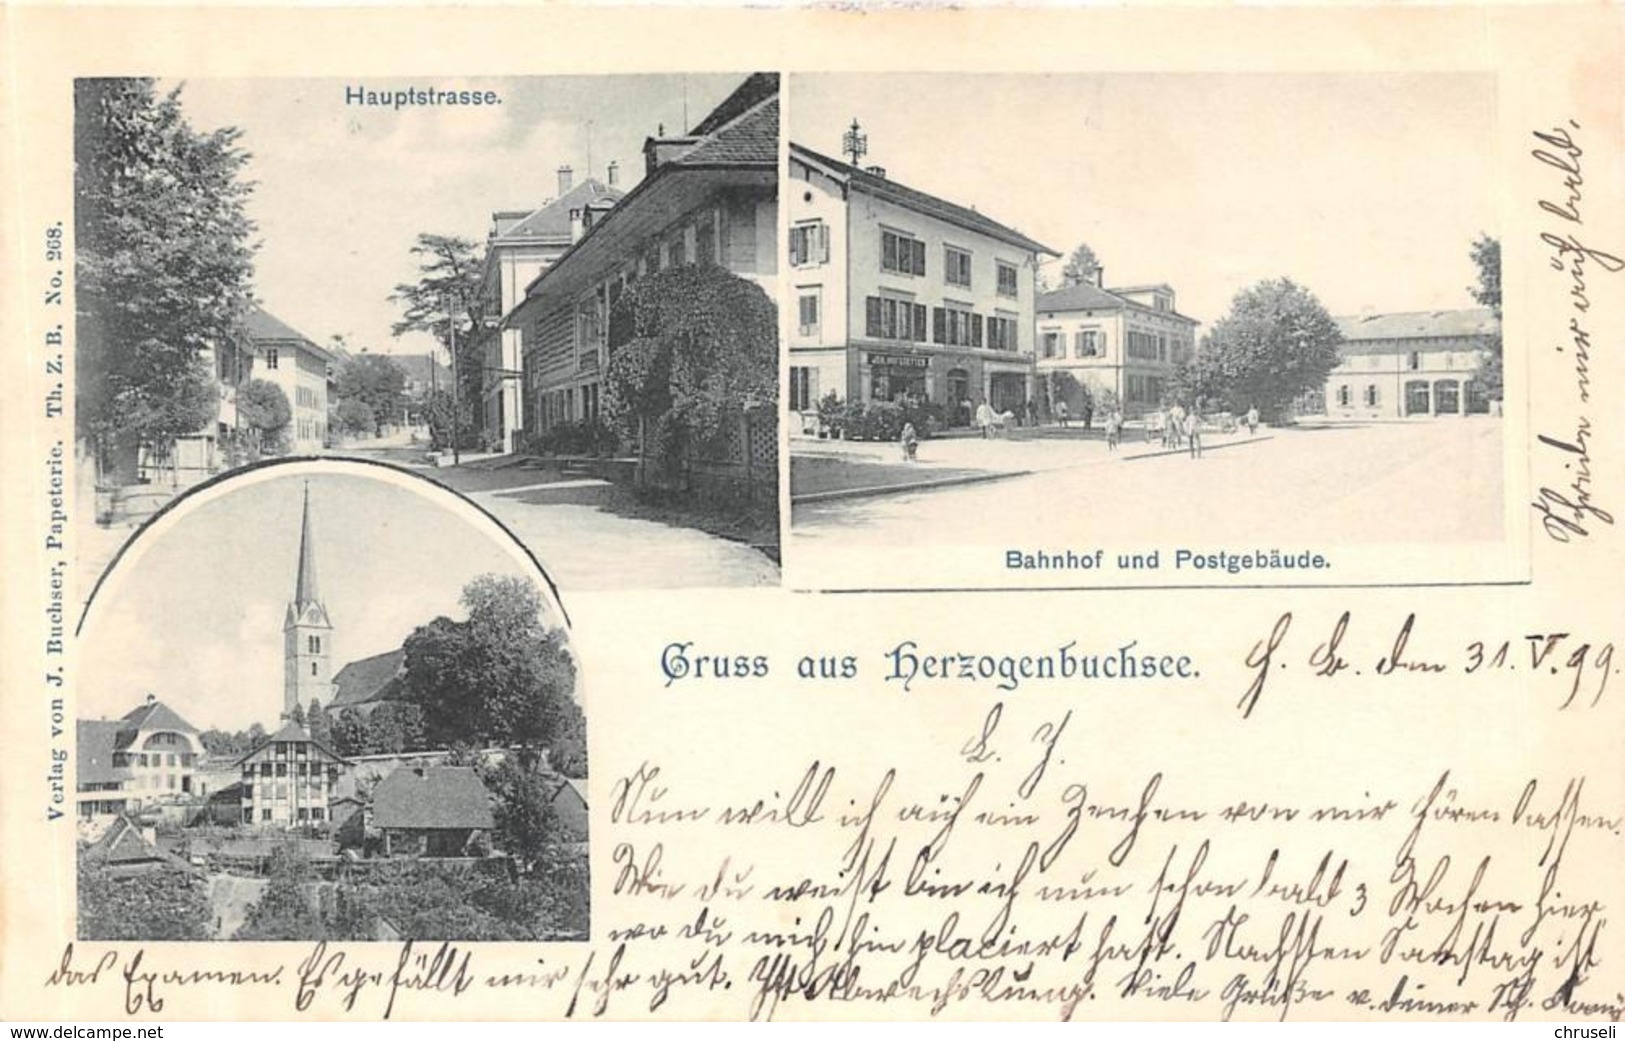 Hauptstrasse.
JOH. HOFSTETTER
Bahnhof und Postgebäude.
Verlag von J. Buchser, Papeterie. Th. Z. B. No. 268.
Gruss aus Herzogenbuchsee.
H. B. den 31. V. 99.
L. J.
Nun will ich auch ein Zeichen von mir hören lassen.
Wie du weißt bin ich nun schon bald 3 Wochen hier,
wo du mich hin placiert hast. Nächsten Samstag ist
das Examen. Es gefällt mir sehr gut. Ist Abwechslung. Viele Grüße v. deiner
Schreibe mir auch bald.
www.delcampe.net
chruseli